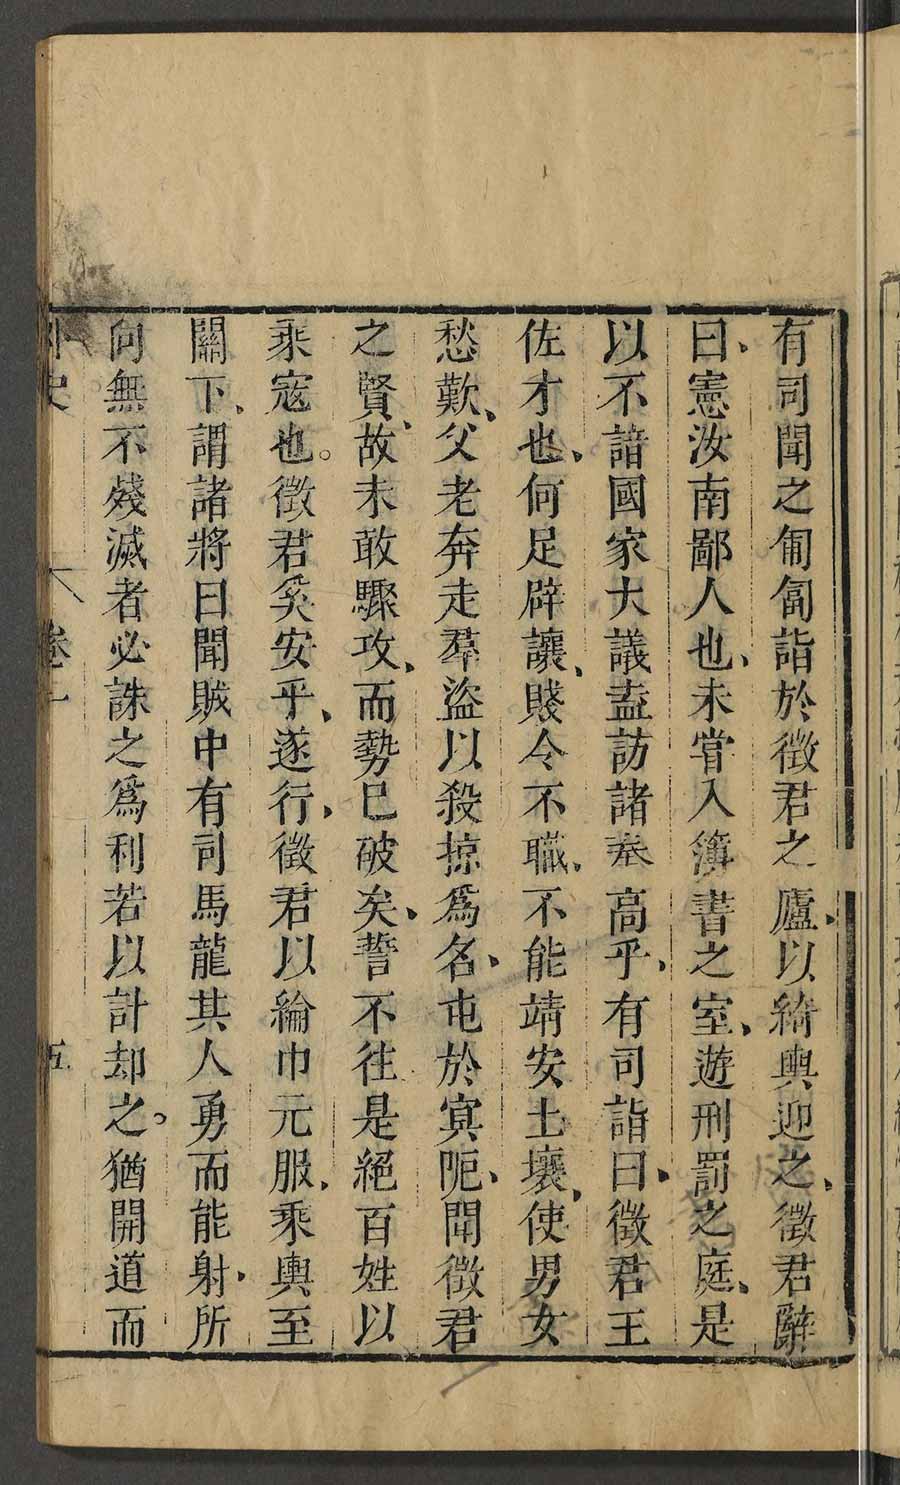 有司聞之匍匐詣於徵君之廬、以綺輿迎之、徵君辭
曰、憲汝南鄙人也、未嘗入簿書之室、遊刑罰之庭、是
以不諳國家大議盍訪諸奉高乎、有司詣曰、徵君王
佐才也、何足辟讓、賤令不職、不能靖安土壤、使男女
愁歎、父老奔走羣盜以殺掠爲名、屯於寘阨、聞徵君
之賢、故未敢驟攻、而勢已破矣、誓不往是絕百姓以
乘寇也。徵君奚安乎、遂行、徵君以綸巾元服、乘輿至
關下、謂諸將曰聞賊中有司馬龍其人勇而能射、所
向無不殘滅者必誅之爲利若以計却之。猶開道而
史 卷一 五